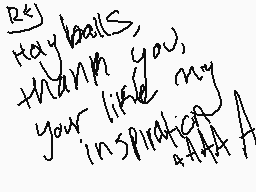 RE
Hay balls,
thank you,
your like my
inspiration
AAAA A